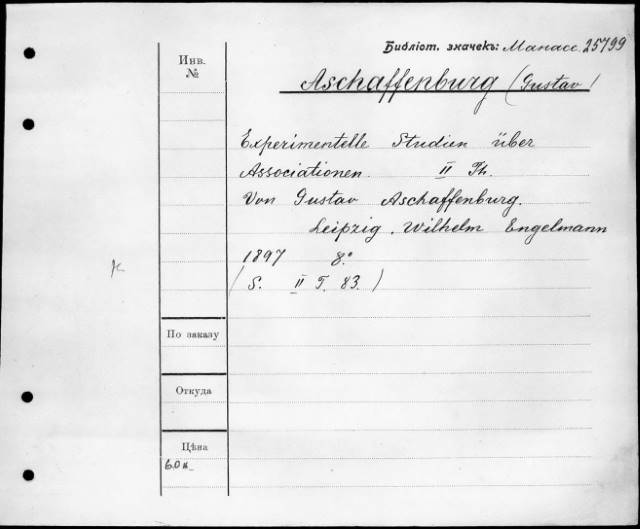 Библіот. значекъ: Манасс. 25799
Инв.
№
Aschaffenburg (Gustav)
Experimentelle Studien über
Associationen. II Th.
Von Gustav Aschaffenburg.
Leipzig. Wilhelm Engelmann
1897 8.°
(S. II T. 83.)
По заказу
Откуда
Цѣна
60 к.